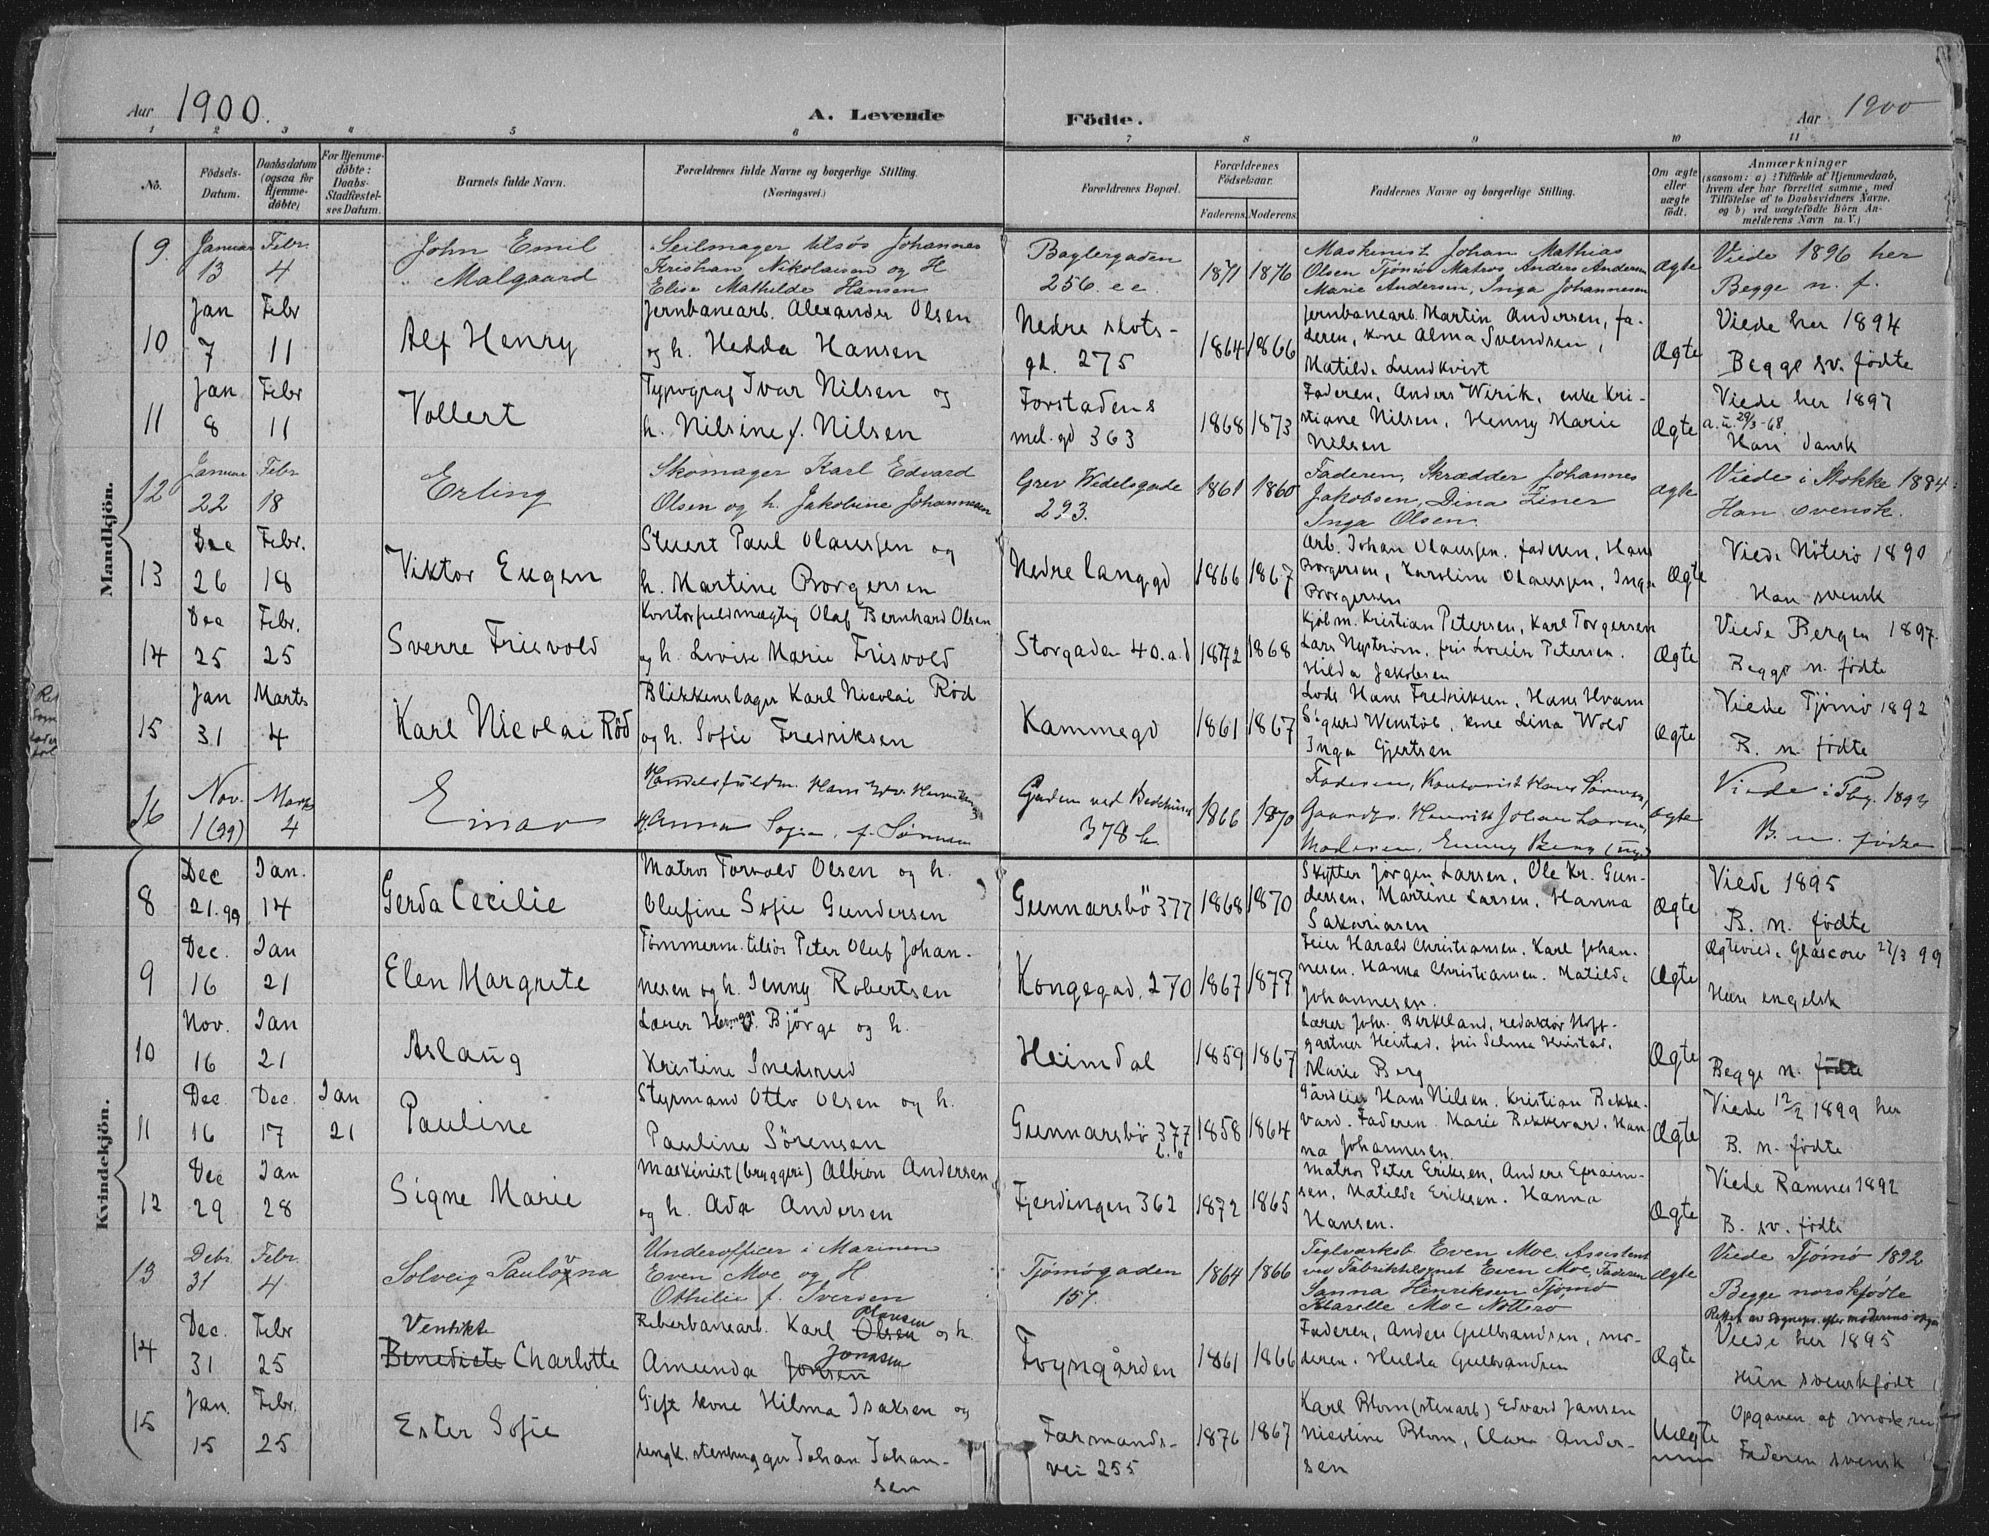 Aar 1900. A. Levende Födte. Aar 1900
1 2 3 4 5 6 7 8 9 10 11
No. Födsels-Datum. Daabsdatum (ogsaa for Hjemmedöbte) For Hjemmedöbte: Daabs-Stadfæstelses Datum. Barnets fulde Navn. Forældrenes fulde Navne og borgerlige Stilling. (Næringsvei.) Forældrenes Bopæl. Forældrenes Födselsaar. Faderens. Moderens. Faddernes Navne og borgerlige Stilling. Om ægte eller uægte födt. Anmærkninger (saasom: a) i Tilfælde af Hjemmedaab, hvem der har forrettet samme, med Tilföielse af to Daabsvidners Navne. og b) ved uægtefödte Börn Anmelderens Navn m. V.)
Mandkjön.
9 Januar Febr. John Emil Seilmager tilsøs Johannes Baglergaden Maskinist Johan Mathias Viede 1896 her
13 4 Malgaard Kristian Nikolaisen og H 256. e e. 1871 1876 Olsen Tjömö Matros Anders Andersen Ægte
Elise Mathilde Hansen Marie Andersen, Inga Johannesen Begge n. f.
Jan Febr Jernbanearb. Alexander Olsen Nedre slots- Jernbanearb. Martin Andersen, fa- Viede her 1894
10 7 11 Alf Henry og h. Hedda Hansen gd. 275 1864 1866 deren, kone Alma Svendsen, Ægte
Matilde Lundkvist Begge sv. födte
Jan Febr Typograf Ivar Nilsen og Forstadens Faderen, Anders Wirik, enke Kri- Viede her 1897
11 8 11 Vollert h. Nilsine f. Nilsen mel. gd 363 1868 1873 stiane Nilsen, Henny Marie Ægte a. u. 29/3-68
Nilsen Han dansk
Januar Febr Skomager Karl Edvard Grev Wedelsgade Faderen, Skrædder Johannes Viede i Stokke 1884
12 22 18 Erling Olsen og h. Jakobine Johannesen 293. 1861 1860 Jakobsen, Dina Ziner Ægte Han svensk.
Inga Olsen
Dec Febr. Stuert Paul Olaussen og Arb. Johan Olaussen. faderen, Hans Viede Nöterö 1890
13 26 18 Viktor Eugen h. Martine Borgersen Nedre langgd 1866 1867 Borgersen, Karoline Olaussen, Inga Ægte
Borgersen Han svensk
Dec Febr. Kontorfuldmægtig Olaf Bernhard Olsen Kjöbm. Kristian Petersen, Karl Torgersen Viede Bergen 1897.
14 25 25 Sverre Frisvold og h. Lovise Marie Frisvold Storgaden 40. a. d 1872 1868 Lars Nyström, frk Petersen. Ægte
Hilda Jakobsen Begge n. födte
Jan Marts Blikkenslager Karl Nicolai Röd Lods Hans Fredriksen, Hans Hvam Viede Tjömö 1892
15 31 4 Karl Nicolai Röd og h. Sofie Fredriksen Kammegd 1861 1867 Sigurd Wenstöb, kone Lina Wold Ægte
Inga Gjertsen B. n. födte
16 Nov. Marts Einar Handelsfuldm. Hans Gaden ved Bedehuset Faderen, Kontorist Hans Viede i Tbg. 1892
1 (99) 4 H. Anna Sofie f. 378 h. 1866 1870 Henrik Johan Larsen, Ægte
Moderen, Emmy Berg B. n. födte
Kvindekjön.
Dec Jan. Matros Torvald Olsen og h. Skytter Jörgen Larsen, Ole Kr. Gun- Viede 1895
8 21. 99 14 Gerda Cecilie Olufine Sofie Gundersen Gunnarsbö 377 1868 1870 dersen, Martine Larsen, Hanna Ægte
Sakariasen B. n. födte
Dec. Jan Tömmerm. tilsös Peter Oluf Johan- Feier Harald Christiansen. Karl Johan- Ægteviede Glascow 27/3 99
9 16 21 Elen Margrete nesen og h. Jenny Robertsen Kongegad. 270 1867 1877 nesen. Hanna Christiansen. Matilde Ægte
Johannesen. Hun engelsk
Nov. Jan Lærer Björge og h. Lærer Johs. Birkeland, redaktör Hoff-
10 16 21 Aslaug Kristine Snedsrud Heimdal 1859 1867 gartner Heistad, frk Selma Heistad. Ægte
Marie Berg Begge n. födte
Dec. Dec. Jan Styrmand Otto Olsen og h. Hans Nilsen. Kristian Bekke- Viede 12/2 1899 her
11 16 17 21 Pauline Pauline Sörensen Gunnarsbö 377 1858 1864 vard. Faderen. Marie Bekkevar. Han- Ægte
na Johannesen. B. n. födte
Dec Jan Maskinist (bryggeri) Albion Andersen Matros Peter Eriksen, Anders Efraim- Viede Ramnes 1892
12 29 28 Signe Marie og h. Ada Andersen Fjerdingen 362 1872 1865 sen, Matilde Eriksen. Hanna Ægte
Hansen. B. sv. födte
Debr. Febr. Underofficer i Marinen Teglværksb. Even Moe, Assistent Viede Tjömö 1892
13 31 4 Solveig Paulövna Even Moe og H Tjömögaden 1864 1866 ved Fabriktilsynet Even Moe, Faderen Ægte
Othilie f. Iversen 157. Sanna Henriksen Tjömö
Klarelle Moe Nötterö Begge norskfödte
Dec. Febr Vendikte Reberbanearb. Karl Olsen Olausen og h. Faderen, Anders Gulbrandsen, mo- Viede her 1895
14 31 25 Benedicte Charlotte Amunda Jonsen Jonasen Foyngården 1861 1866 deren. Hulda Gulbrandsen Ægte
Hun svenskfödt
Jan. Febr. Gift kone Hilma Isaksen og Karl Blom (stenarb) Edvard Jansen Opgaven af moderen
15 15 25 Ester Sofie ungk. stenhugger Johan Johan- Farmands- 1876 1867 Nicoline Blom, Clara Ander- Uægte
sen vei 255 sen Faderen svensk